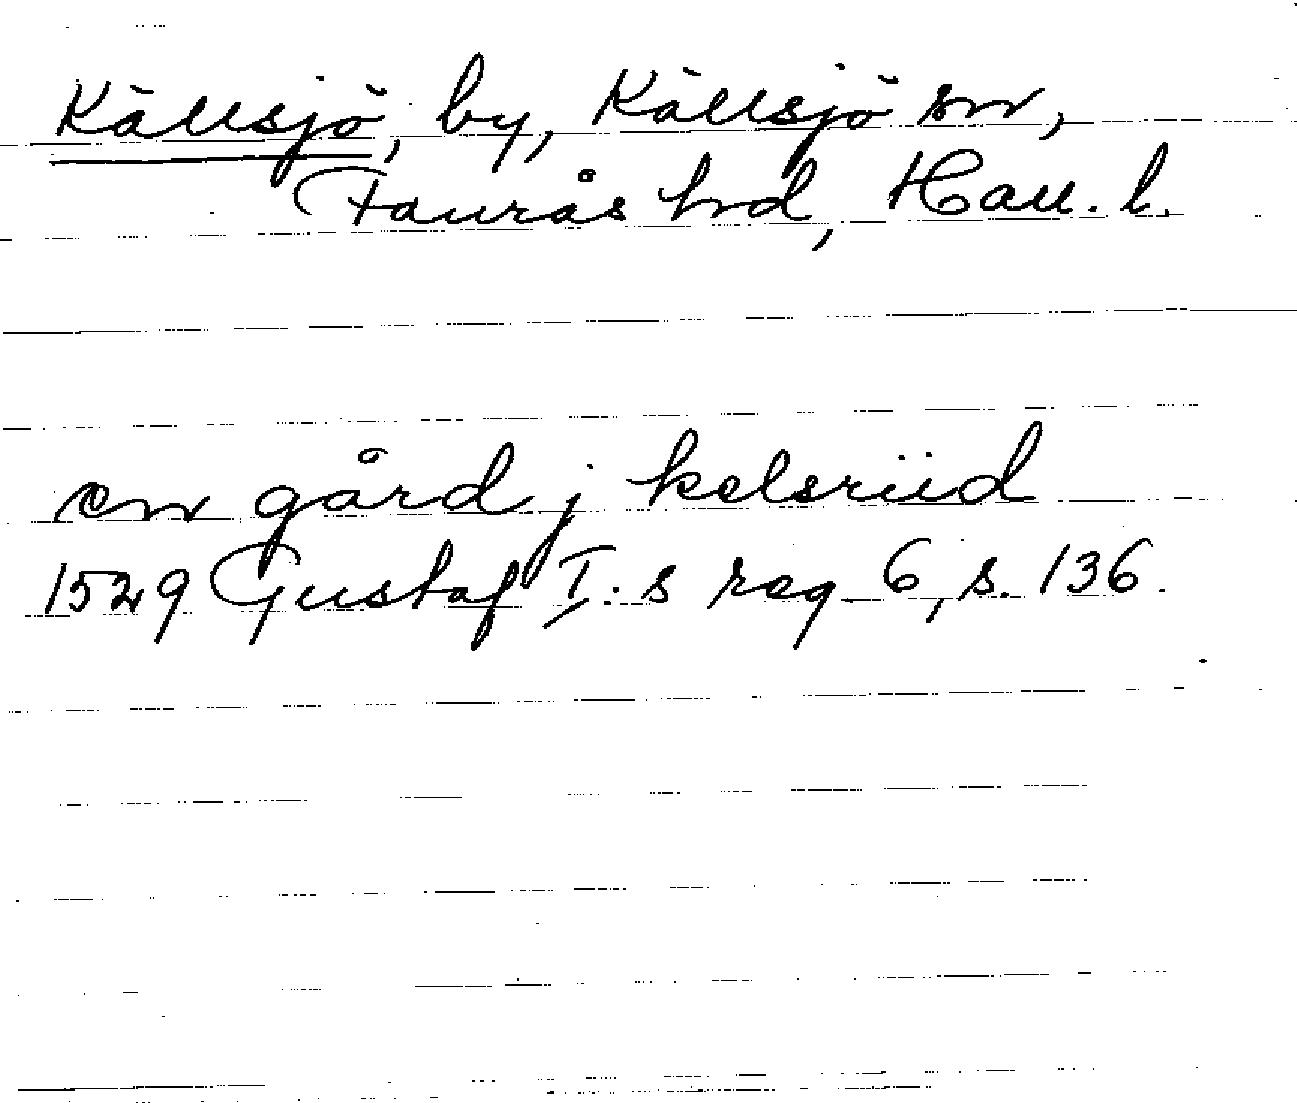 Källsjö, by, Källsjö sn,
Faurås hrd, Hall. l.
en gård j kelsriid
1529 Gustaf I:s reg 6, s. 136.